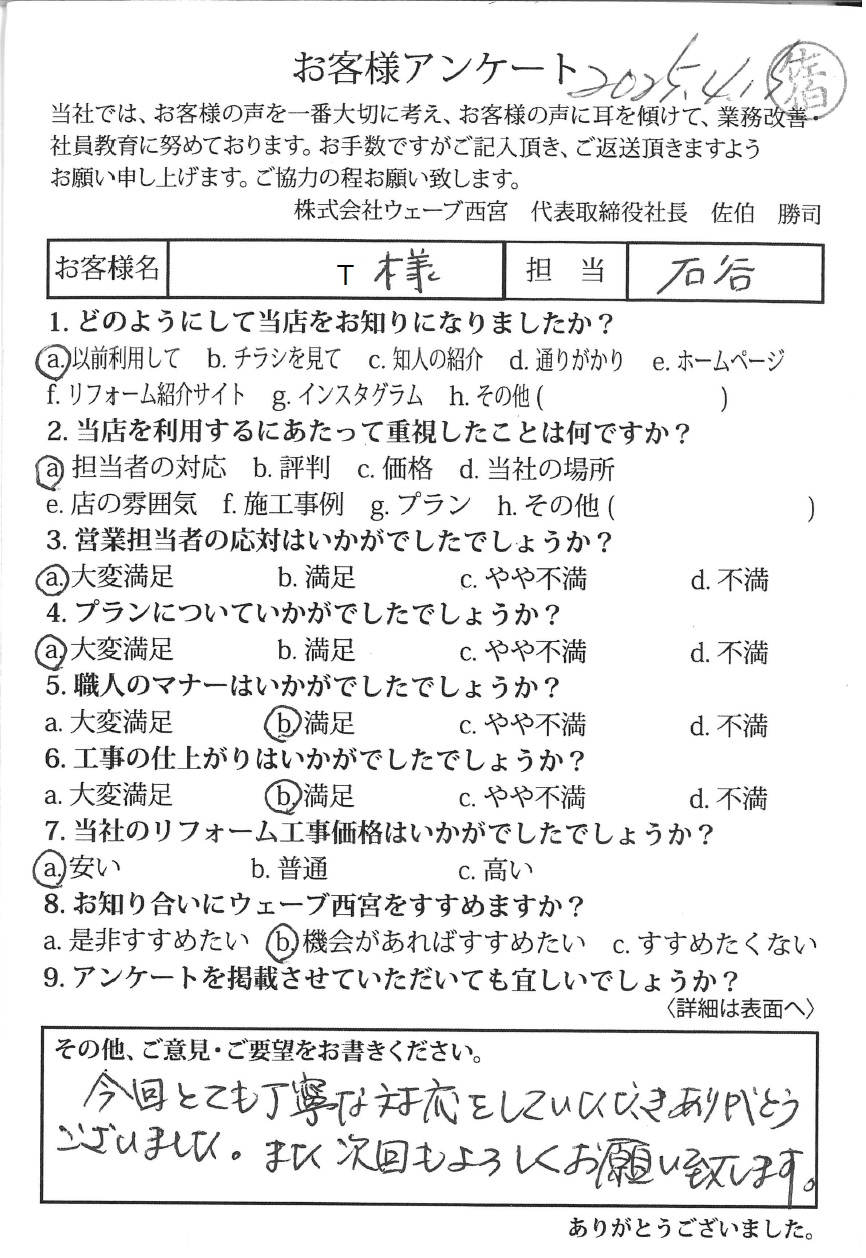 お客様アンケート 2025.4.15 佐伯
当社では、お客様の声を一番大切に考え、お客様の声に耳を傾けて、業務改善・
社員教育に努めております。お手数ですがご記入頂き、ご返送頂きますよう
お願い申し上げます。ご協力の程お願い致します。
株式会社ウェーブ西宮 代表取締役社長 佐伯 勝司
お客様名 T 様 担 当 石谷
1. どのようにして当店をお知りになりましたか？
a. 以前利用して b. チラシを見て c. 知人の紹介 d. 通りがかり e. ホームページ
f. リフォーム紹介サイト g. インスタグラム h. その他 ( )
2. 当店を利用するにあたって重視したことは何ですか？
a 担当者の対応 b. 評判 c. 価格 d. 当社の場所
e. 店の雰囲気 f. 施工事例 g. プラン h. その他 ( )
3. 営業担当者の応対はいかがでしたでしょうか？
a. 大変満足 b. 満足 c. やや不満 d. 不満
4. プランについていかがでしたでしょうか？
a. 大変満足 b. 満足 c. やや不満 d. 不満
5. 職人のマナーはいかがでしたでしょうか？
a. 大変満足 b 満足 c. やや不満 d. 不満
6. 工事の仕上がりはいかがでしたでしょうか？
a. 大変満足 b. 満足 c. やや不満 d. 不満
7. 当社のリフォーム工事価格はいかがでしたでしょうか？
a. 安い b. 普通 c. 高い
8. お知り合いにウェーブ西宮をすすめますか？
a. 是非すすめたい b. 機会があればすすめたい c. すすめたくない
9. アンケートを掲載させていただいても宜しいでしょうか？
〈詳細は表面へ〉
その他、ご意見・ご要望をお書きください。
今回とても丁寧な対応をしていただきありがとう
ございました。また次回もよろしくお願い致します。
ありがとうございました。